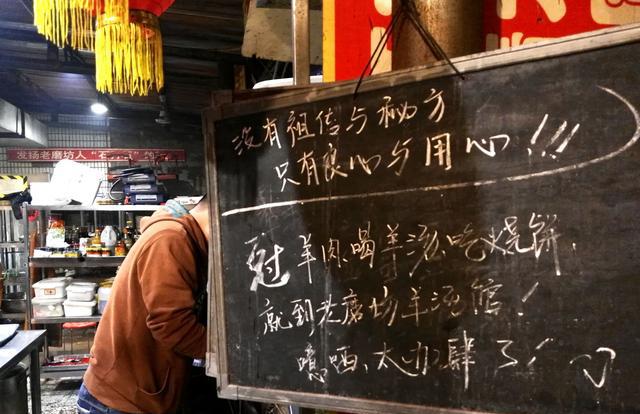 发扬老磨坊人“石
没有祖传与秘方
只有良心与用心!!!
羊肉喝羊汤吃烧饼,
就到老磨坊羊汤馆!
噫哂、太加肆了!